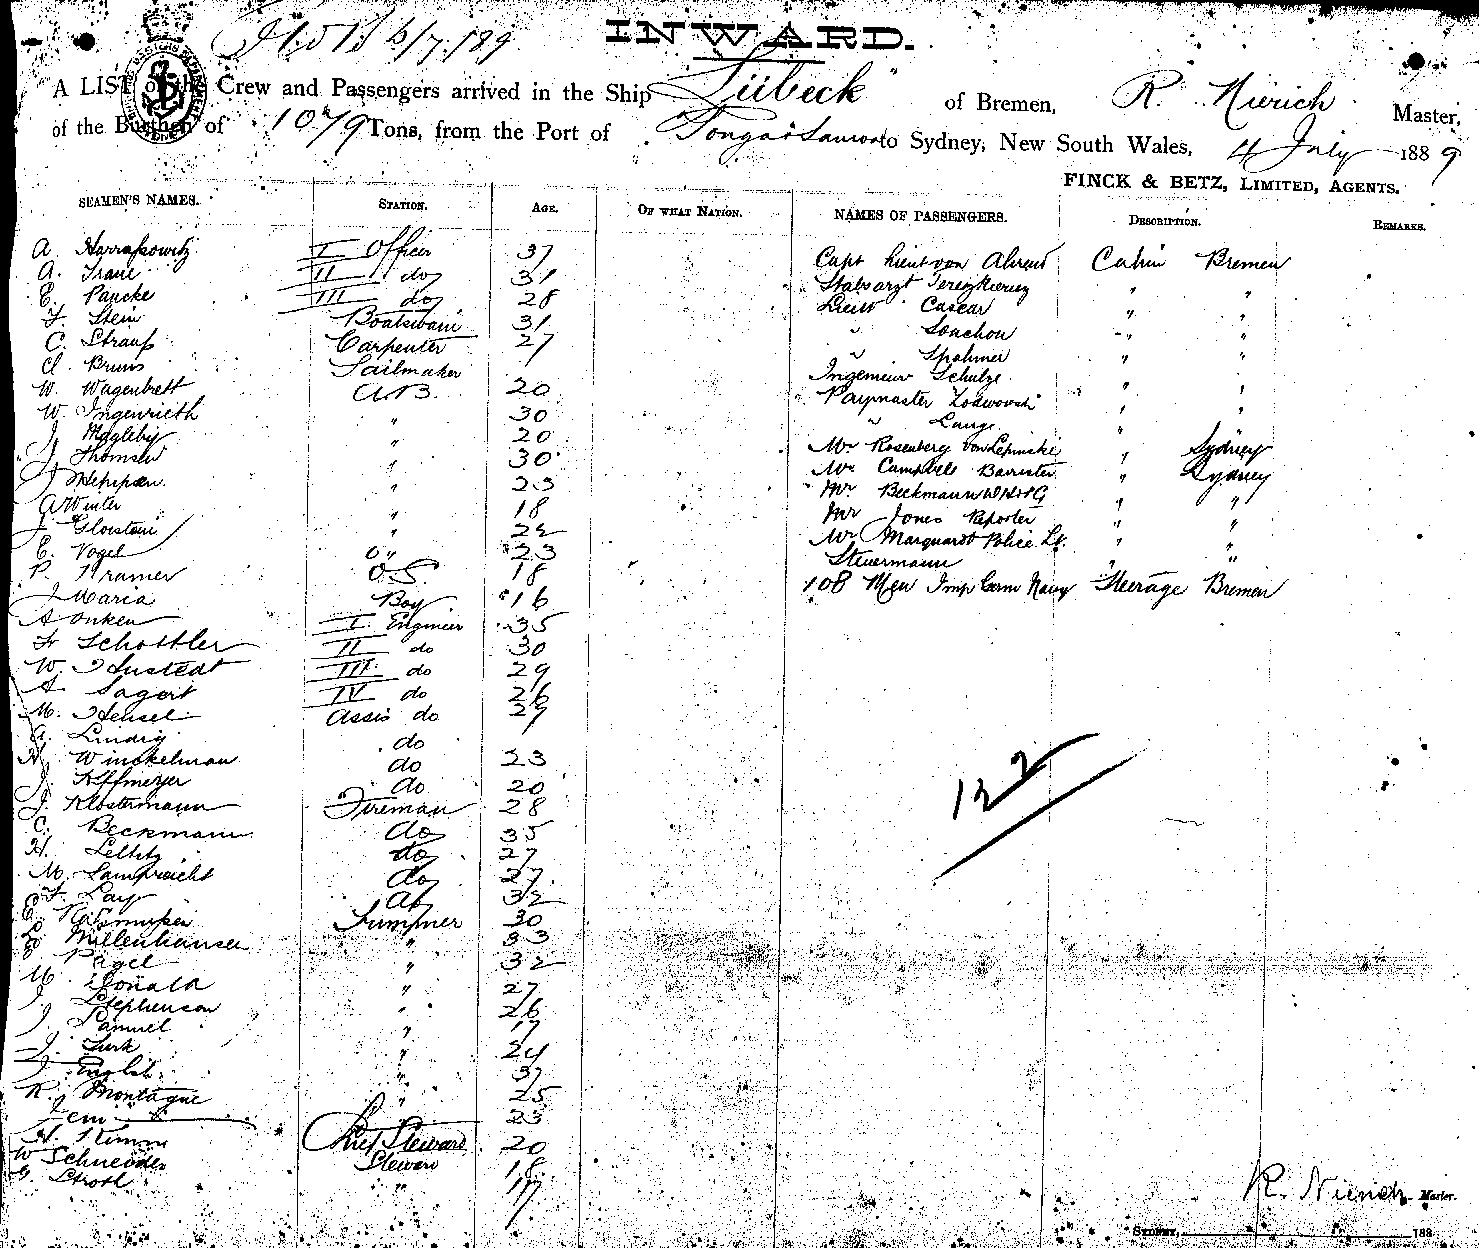 INWARD.
6/7.189
A LIST of the Crew and Passengers arrived in the Ship "Lübeck" of Bremen, R. Nierich Master,
of the Burthen of 1079 Tons, from the Port of Tonga & Samoa to Sydney, New South Wales, 4 July 1889
FINCK & BETZ, LIMITED, AGENTS.
SEAMEN'S NAMES. STATION. AGE. OF WHAT NATION. NAMES OF PASSENGERS. DESCRIPTION. REMARKS.
A. Harrassowitz I Officer 37 Capt Lieut von Ahrens Cabin Bremen
A. Traue II do 31 Stabsarzt " "
E. Pancke III do 28 Lieut Caesar " "
F. Stein Boatswain 31 " Souchon " "
C. Strauss Carpenter 27 " Spahmer " "
A. Bruns Sailmaker Ingenieur Schulze " "
W. Wagenbrett AB. 20 Paymaster " "
W. Ingenrieth " 30 " Lange "
J. Magleby " 20 Mr Rosenberg von Lepinski " Sydney
J. Thomsen " 30 Mr Campbell Barrister " Sydney
J. " 23 Mr Beckmann " "
A Winter " 18 Mr Jones Reporter " "
J. Glorstein " 22 Mr Marquardt Police Lt. " "
E. Vogel O " 23 Steuermann " "
P. Kramer O.S. 18 108 Men Imp Germ Navy Steerage Bremen
J Maria Boy 16
A Onken I Engineer 35
Fr Schottler II do 30
W. Hustedt III do 29
A Sagert IV do 26
M. Hensel Assis do 29
A. Lindig do
H. Winckelman do 23
J. Kffmeyer do 20
J. Klostermann Fireman 28
C. Beckmann do 35
H. do 27
M. Lamprecht do 27
F. Lay do 32
E. Trimmer 30
Millenhausen " 33
Pagel " 32
M. Donald " 27
J. Stephenson " 26
J. Samuel " 17
J. Turk " 24
J. English " 37
R. Montague " 25
Jem 23
H. Timm Chief Steward 20
W Schneider Steward 18
G. Stroth " 17
122
R. Nierich Master.
SYDNEY, 188